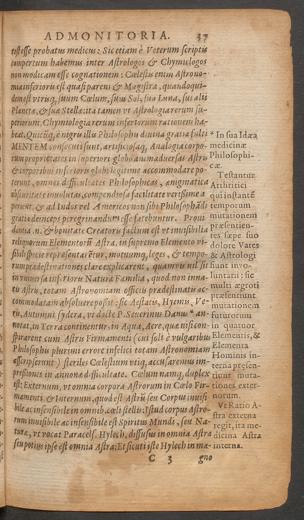 ADMONITORIA. 37
teſtiſſe probatus medicus: Sic etiam è Veterum ſcriptis
compertum habemus inter Aſtrologos & Chymologos
non modicam eſſe cognationem: Cœleſtis enim Aſtrono-
mia inferioris eſt quaſi parens & Magiſtra, quandoqui-
dem eſt utriuſq; ſuum Cœlum, ſuus Sol, ſua Luna, ſui alii
Planetæ, & ſua Stellæ: ita tamen ut Aſtrologia rerum ſu-
periorum, Chymologia rerum inferiorum rationem ha-
beat. Quicuq; è nigris illis Philoſophis divina gratia fulti
MENTEM conſecuti ſunt, artificioſaq; Analogia corpo-
rum proprietates in ſuperiori globo
& corporibus inferioris globi legitimè accommodare po-
tuerunt, omnes difficultates Philoſophicas, ænigmatica
obſcuritate involutas, compendioſa facilitate viriſſime a-
perire, & ad laudem Philoſophi
gratis
dentia & bonitate Creatoris factum eſt ut inviſibilia
reliquorum Elementorũ Aſtra, in ſupremo Elemento vi-
ſibili ſpecie repræſentarẽtur, motuumq; leges, & tempo-
rum prædeſtinationes clarè explicarent, quamvis nil ſit
in univerſa inferioris Naturæ Familia, quod non inna-
to Aſtro, totam Aſtronomiam officiis prædeſtinatis ac-
commodatam abſolvere poſſit: ſic Æſtatis, Hyemis, Ve-
ris, Autumni ſydera, ut doctè P. Severinus Danus an-
notat, in Terra continentur: in Aqua, Aere, quæ niſi con-
ſpirarent cum Aſtris Firmamenti (cui ſoli è vulgaribus
Philoſophis plurimi errore inſcitia totam Aſtronomiam
aſcripſerunt) ſteriles Cœleſtium
preſſiones
eſt: Externum, ut omnia corpora Aſtrorum in Cœlo Fir-
mamenti: & Internum, quod eſt Aſtrũ ſeu Corpus inviſi-
bile ac inſenſibile in omnib. cœli ſtellis: Iſtud corpus Aſtro-
rum inviſibile ac inſenſibile eſt Spiritus Mundi, ſeu Na-
turæ, ut vocat Paracelſ. Hylech, diffuſus in omnia Aſtra
ſeu potius ipſe eſt omnia Aſtra: Et ſicuti iſte Hylech in ma-
C 3 gno
* In ſua Idæa
medicinæ
Philoſophi-
cæ.
Teſtantur
Arthritici
qui inſtantẽ
temporum
mutationem
præſentien-
tes ſæpe ſuo
dolore Vates
& Aſtrologi
ſunt invo-
luntarii: ſic
multi ægroti
præſentiunt
mutationem
futurorum
in quatuor
Elementis, &
Elementa
Hominis in-
terna præſen-
tiunt muta-
tiones exter-
norum.
Ut Ratio A-
ſtra externa
regit, ita me-
dicina Aſtra
interna.